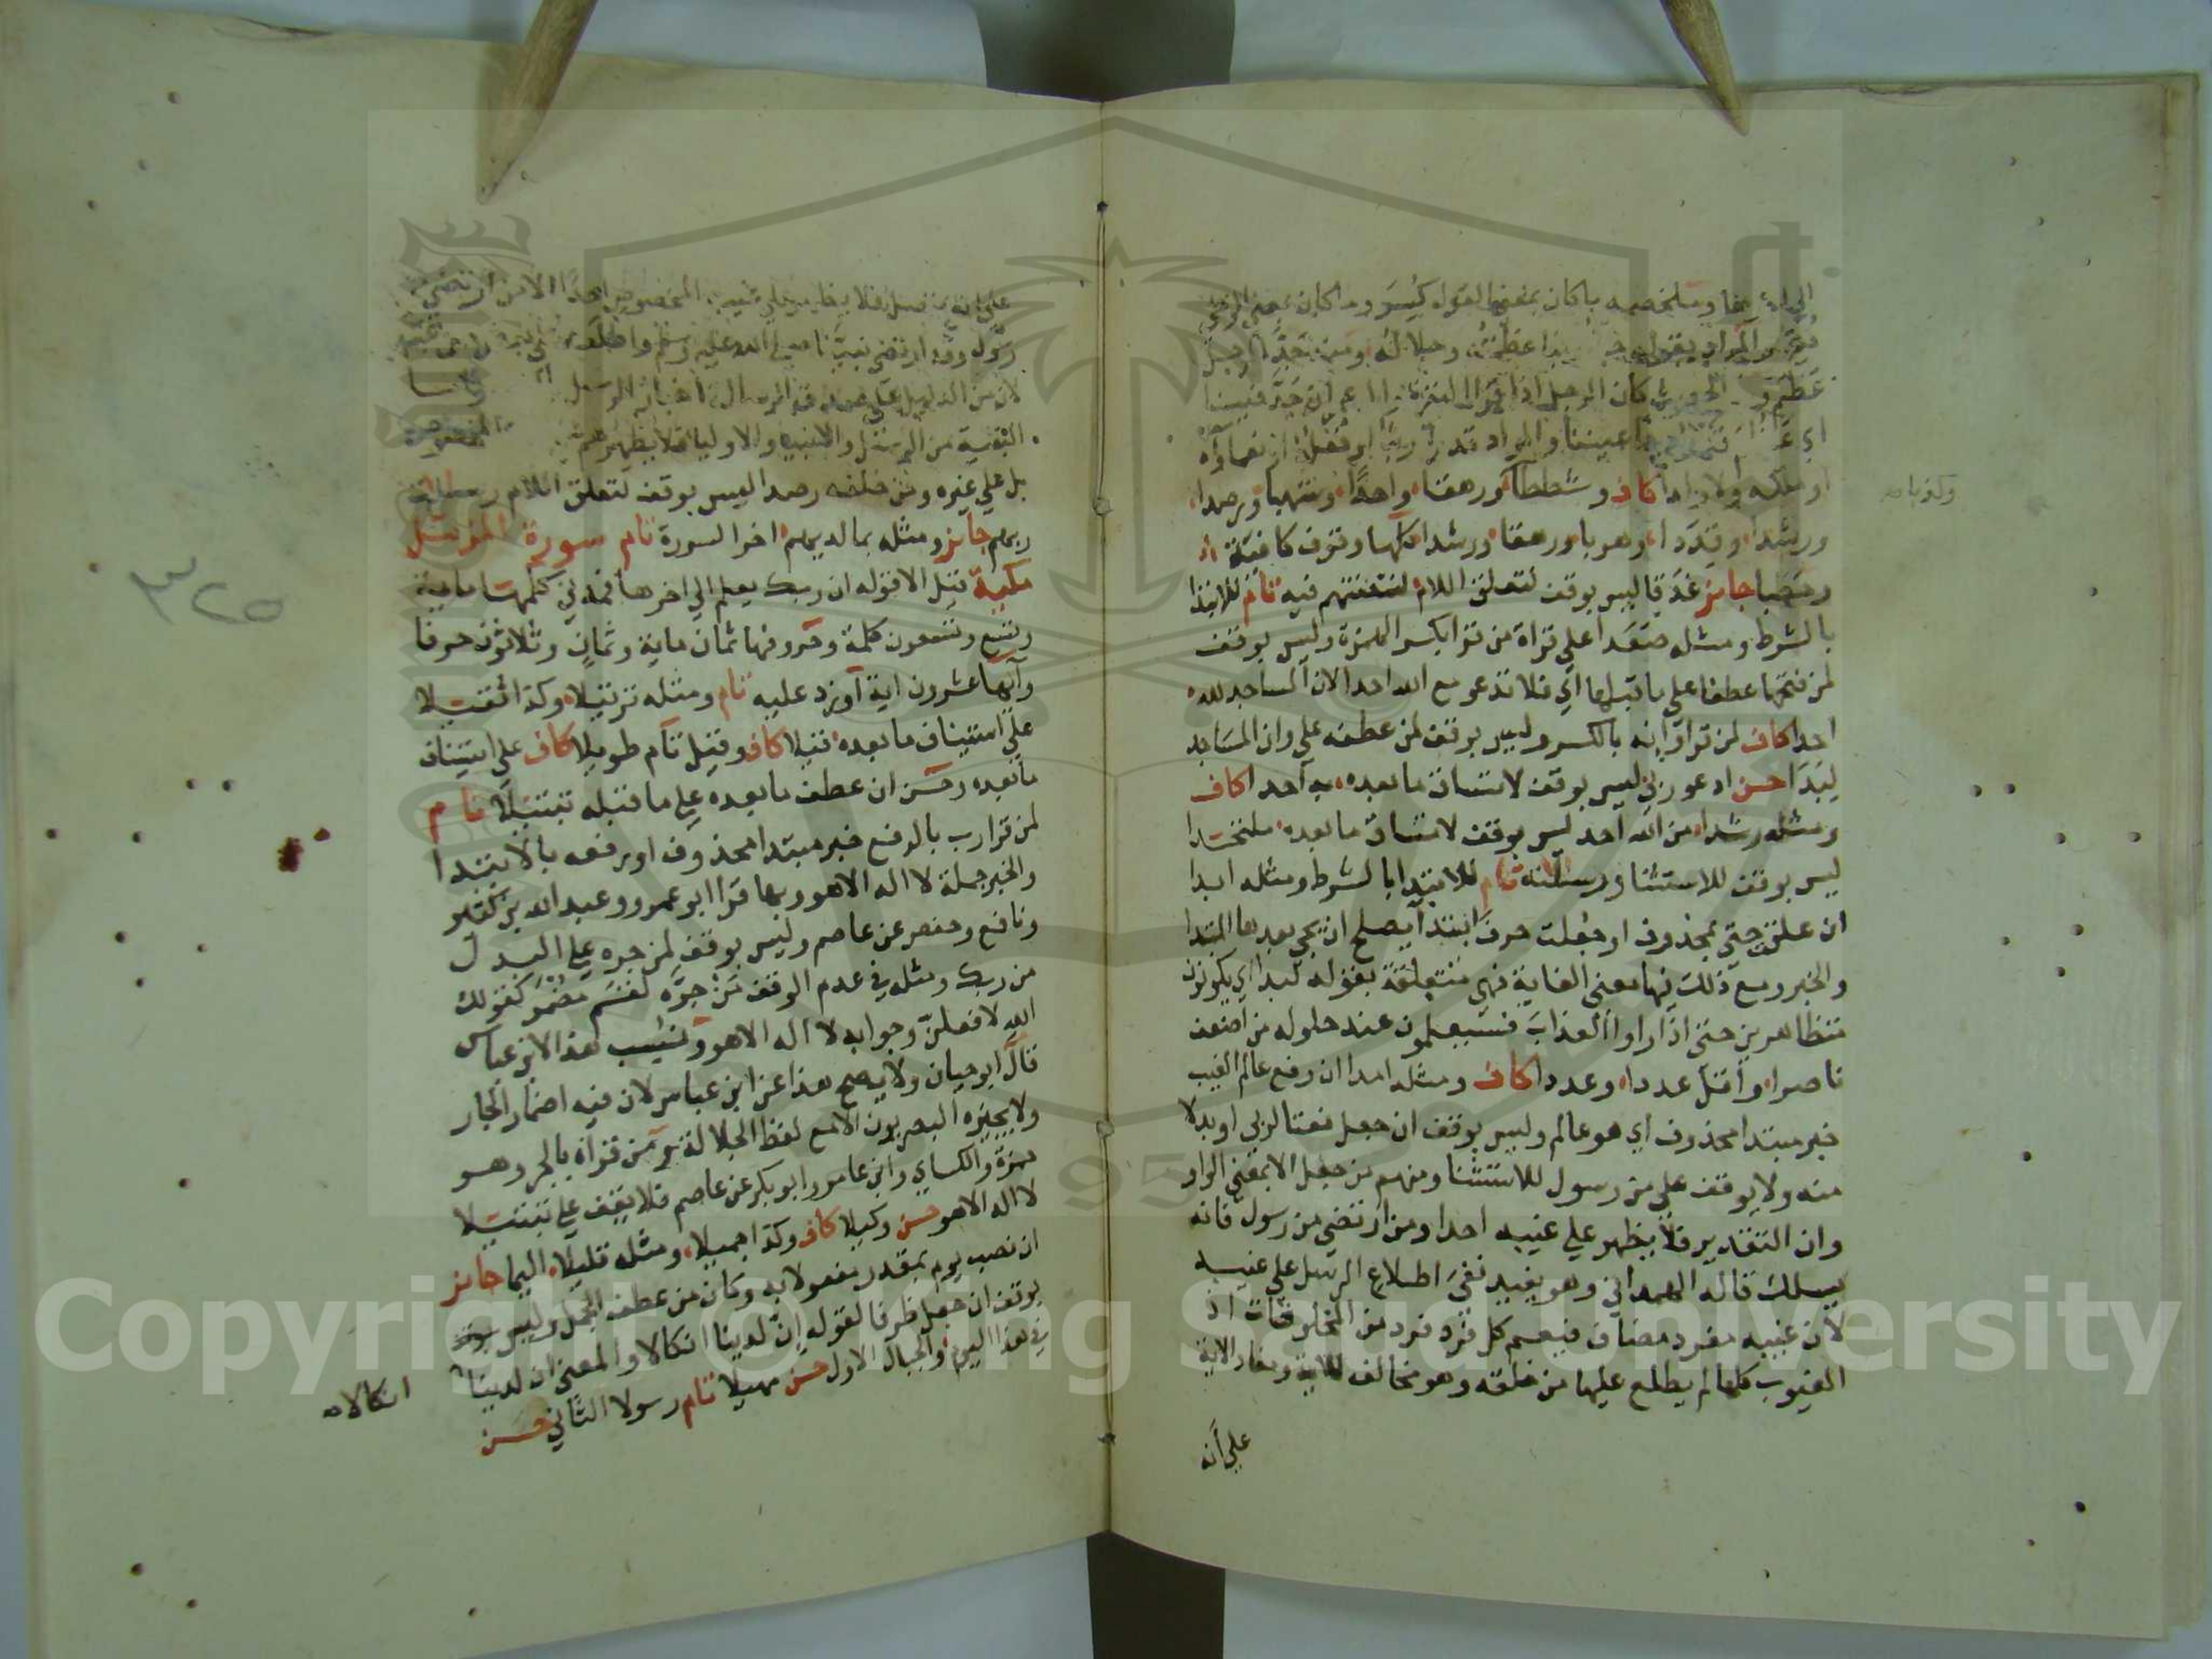 وملخصه ما كان بمعنى القول كسر وما كان بمعنى الوحي
والمراد بقوله عظمته وجلاله ومنه جد الرجل
عظم و الحديث كان الرجل اذا قرا البقرة وال عمران جد فينا
اعيننا والمراد قدرة ربنا او فعله او نعماؤه
او ملكه ولا ولدا كاف وشططا ورهقا واحدا وشهبا ورصدا
ورشدا وقددا وهربا ورهقا ورشدا كلها وقوف كافية
وحطبا جائز غدقا ليس بوقف لتعلق اللام لنفتنهم فيه تام للابتدا
بالشرط ومثله صعدا على قراة من قرا بكسر الهمزة وليس بوقف
لمن فتحها عطفا على ما قبلها اي فلا تدعو مع الله احدا لان المساجد لله
احدا كاف لمن قرا وانه بالكسر وليس بوقف لمن عطفه على وان المساجد
لبدا حسن ادعو ربي ليس بوقف لاتساق ما بعده به احدا كاف
ومثله رشدا من الله احد ليس بوقف لاتساق ما بعده ملتحدا
ليس بوقف للاستثنا ورسالاته تام للابتدا بالشرط ومثله ابدا
ان علق حتى بمحذوف او جعلت حرف ابتدا يصلح ان يجي بعدها المبتدا
والخبر ومع ذلك فيها معنى الغاية فهي متعلقة بقوله لبدا اي يكونون
متظاهرين حتى اذا راوا العذاب فسيعلمون عند حلوله من اضعف
ناصرا واقل عددا وعددا كاف ومثله امدا ان رفع عالم الغيب
خبر مبتدا محذوف اي هو عالم وليس بوقف ان جعل نعتا لربي او بدلا
منه ولا يوقف على من رسول للاستثنا ومنهم من جعل الا بمعنى الواو
وان التقدير فلا يظهر على غيبه احدا ومن ارتضى من رسول فانه
يسلك قاله الهمداني وهو يفيد نفي اطلاع الرسل على غيبه
لان غيبه مفرد مضاف فيعم كل فرد فرد من المخلوقات اذ
الغيوب كلها لم يطلع عليها من خلقه وهو مخالف للاية ومفاد الاية
على انه
على انه متصل فلا يظهر على غيبه المخصوص احدا الا من ارتضى
رسول وقد ارتضى نبينا صلى الله عليه وسلم واطلعه
لان من الدليل على صدق الرسالة اخبار الرسول
البقية من الرسل والانبيا والاوليا فلا يظهرهم المخصوص
بل على غيره ومن خلفه رصدا ليس بوقف لتعلق اللام رسالات
ربهم جائز ومثله بما لديهم اخر السورة تام سورة المزمل
مكية قيل الا قوله ان ربك يعلم الى اخرها فمدني كلمها ماية
وتسع وتسعون كلمة وحروفها ثمان ماية وثمان وثلاثون حرفا
وآيها عشرون اية او زد عليه تام ومثله ترتيلا وكذا ثقيلا
على استيناف ما بعده قيلا كاف وقيل تام طويلا كاف على استيناف
ما بعده وحسن ان عطف ما بعده على ما قبله تبتيلا تام
لمن قرا رب بالرفع خبر مبتدا محذوف او رفعه بالابتدا
والخبر جملة لا اله الا هو وبها قرا ابو عمرو وعبد الله بن كثير
ونافع وحفص عن عاصم وليس بوقف لمن جره على البدل
من ربك ومثله في عدم الوقف من جره لقسم مضمر كقولك
الله لافعلن وجوابه لا اله الا هو ونسب هذا لابن عباس
قال ابو حيان ولا يصح هذا عن ابن عباس لان فيه اضمار الجار
ولا يجيزه البصريون الا مع لفظ الجلالة ومن قراه بالجر وهو
حمزة والكساي وابن عامر وابو بكر عن عاصم فلا يقف على تبتيلا
لا اله الا هو حسن وكيلا كاف وكذا جميلا ومثله قليلا اليما جائز
ان نصب يوم بمقدر مفعولا به وكان من عطف الجمل وليس بوقف
يوقف ان جعل ظرفا لقوله ان لدينا انكالا والمعنى ان لدينا
في هذا اليوم والجبال الاول حسن مهيلا تام رسولا الثاني حسن
انكالا
٣٢٥
Copyright © King Saud University